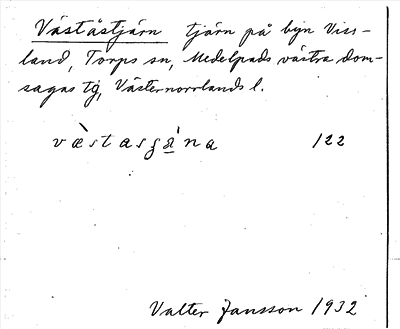 Väståstjärn tjärn på byn Viss-
land, Torps sn, Medelpads västra dom-
sagas tg, Västernorrlands l.
væ̀stasʃa̲̍na 122
Valter Jansson 1932